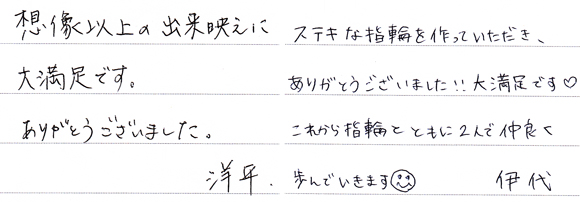 想像以上の出来映えに
大満足です。
ありがとうございました。
洋平.
ステキな指輪を作っていただき、
ありがとうございました!!大満足です♡
これから指輪とともに2人で仲良く
歩んでいきます☺ 伊代